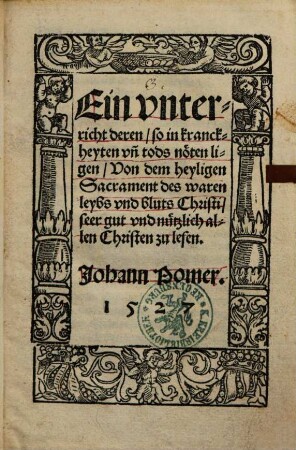 Ein vnter-
richt deren / so in kranck-
heyten vñ tods nöten li-
gen / Von dem heyligen
Sacrament des waren
leybs vnd bluts Christi /
seer gut vnd nützlich al-
len Christen zu lesen.
Johann Pomer.
1527